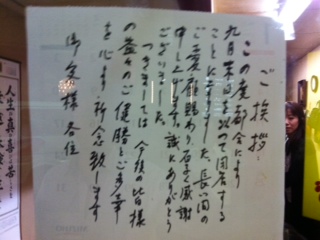 ご挨拶
この度都合により
九月末日を以って閉店する
ことになりました。長い間の
ご愛顧賜わり厚く感謝
申し上げます。誠にありがとう
ございました。
つきましては 今後の皆様
の益々のご健勝とご多幸
を心より祈念致します
御客様 各位
人生の真の喜び